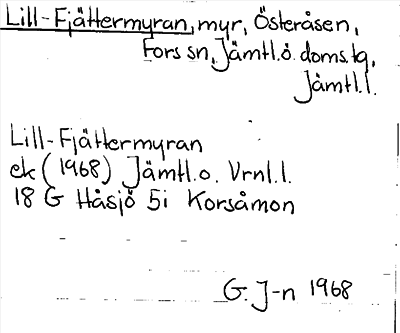 Lill-Fjättermyran, myr, Österåsen,
Fors sn, Jämtl.ö. doms.tg,
Jämtl.l.
Lill-Fjättermyran
ek (1968) Jämtl.o. Vrnl.l.
18 G Håsjö 5i Korsåmon
G. J-n 1968